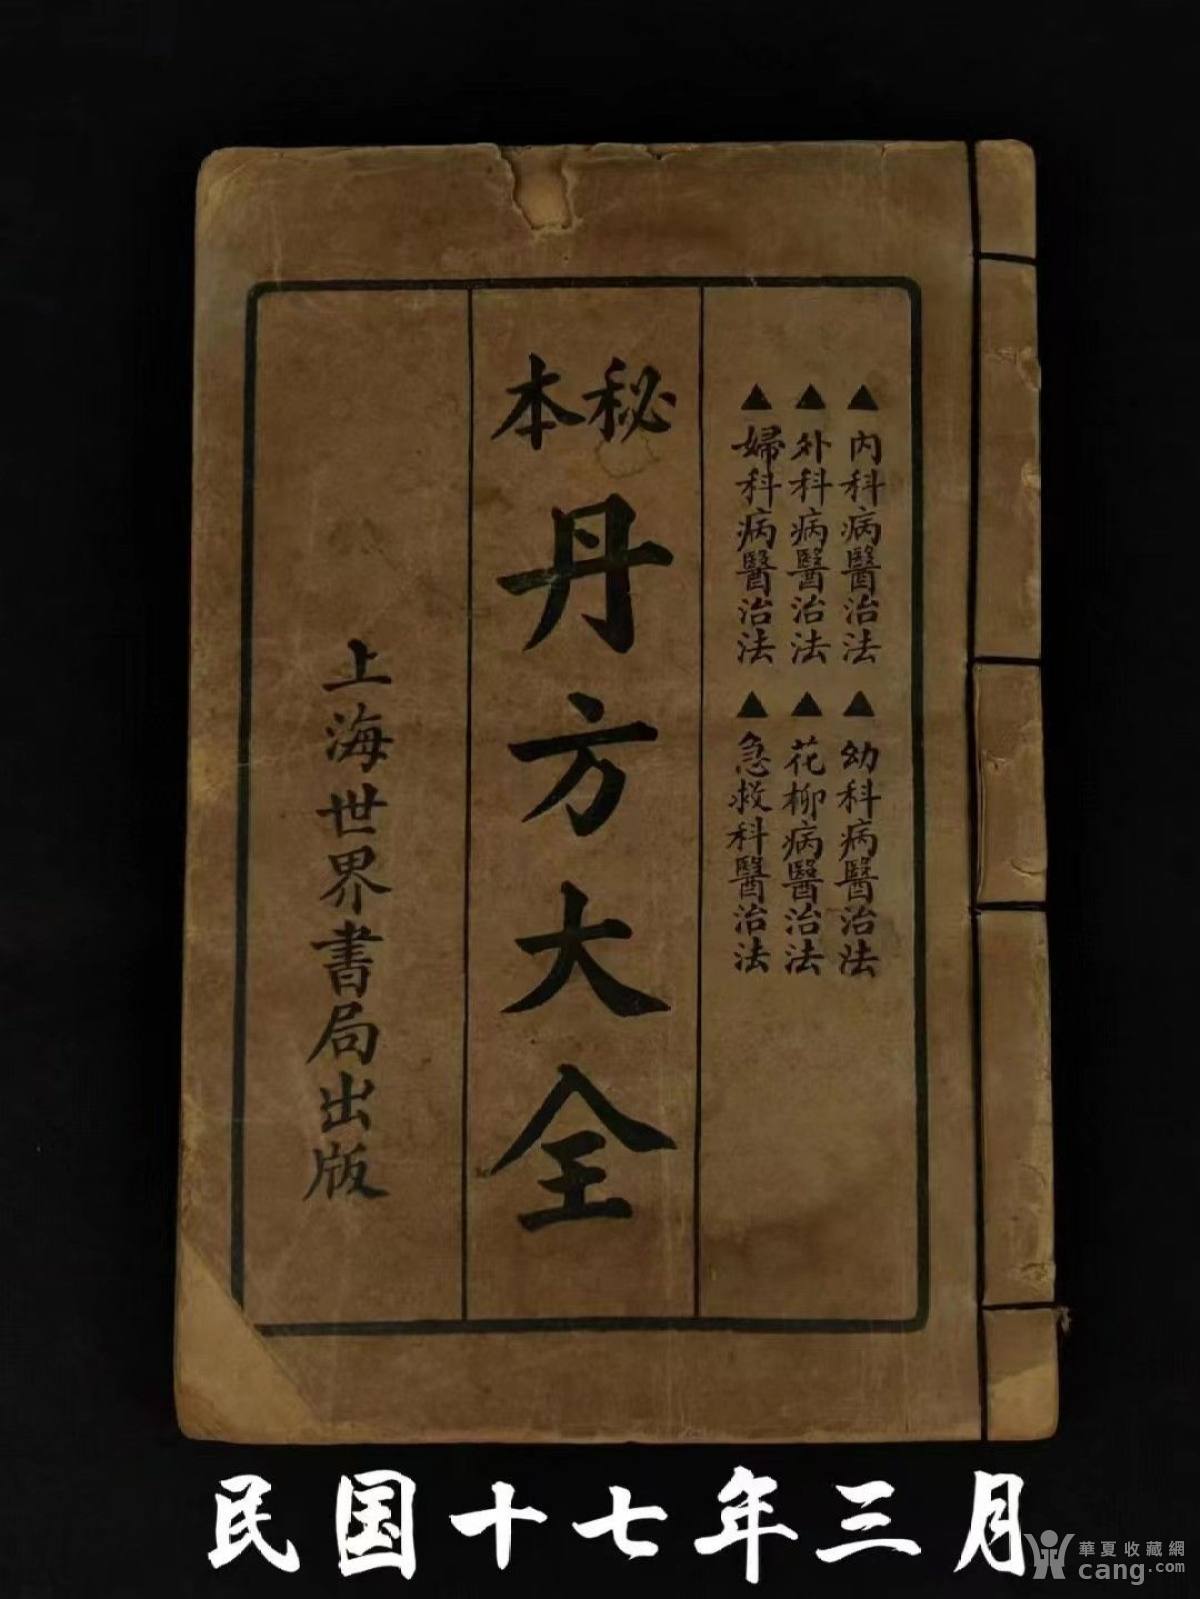 ▲內科病醫治法
▲幼科病醫治法
▲外科病醫治法
▲花柳病醫治法
▲婦科病醫治法
▲急救科醫治法
秘本
丹方大全
上海世界書局出版
民国十七年三月
華夏收藏網
cang.com